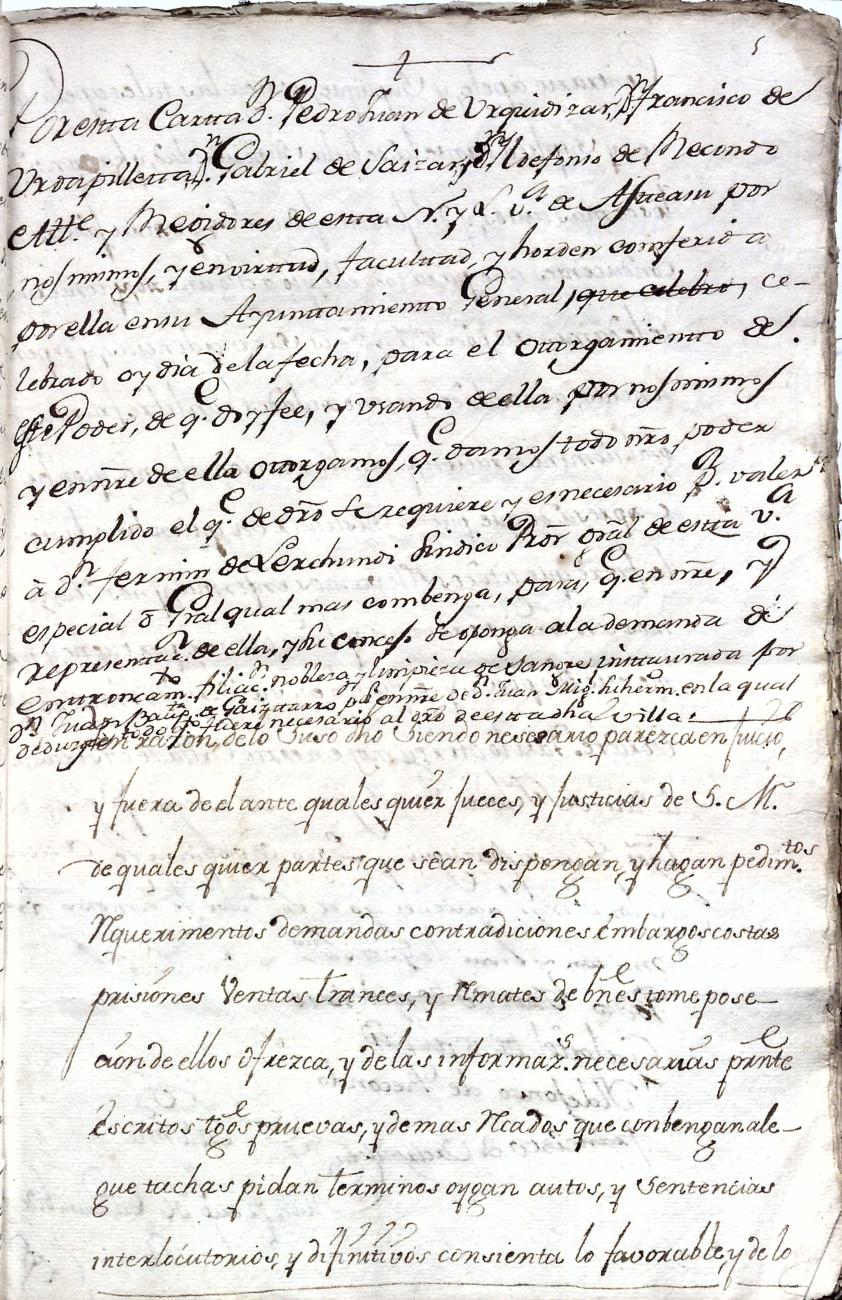 5
Por esta Cartta Dn. Pedro Juan de Urquidizar, Dn Francisco de
Urdapilletta, Dn. Gabriel de Saizar, y Dn Ildefonso de Recondo
Alle. y Regidores de esta N. y L. Va. de Asteasu por
nos mimos, y en virttud, facultad, y horden comferida
por ella en su Ayunttamientto General, que celebro, ce-
lebrado oy dia de la fecha, para el ottorgamientto de
este Poder, de qe. doy fee, y usando de ella por nos mimos
y en nre de ella ottorgamos, qe. damos todo nro poder
cumplido el qe. de dro se requiere y es necesario Pa. valer
à dn. Fermin de Lerchundi Sindico Pror gral de esta va.
especial ò Gral qual mas combenga, para, qe. en nre, y
representan. de ella, y su concejo se oponga a la demanda de
entroncamto. filiacn. nobleza y limpieza de sangre instaurada por
dn Juan Bautta de Goizatarro por si en nre de dn. Juan Migl. su herm. en la qual
todo qto fuere necesario al dro de esta dha villa.
y en razon de lo suso dho siendo nesesario parezca en juicio,
y fuera de el ante quales quier Jueces, y Justicias de S. M.
de quales quier partes que sean dispongan, y hagan pedimtos.
Requerimentos demandas contradiciones embargos costas
prisiones Ventas trances, y Remates de bnes tome pose-
cion de ellos ofrezca, y de las informazs. necesarias prnte
escritos tgos pruevas, y demas Recados que conbengan ale-
gue tachas pidan terminos oygan autos, y Sentencias
interlocutorios, y difinitivos consienta lo favorable, y de lo